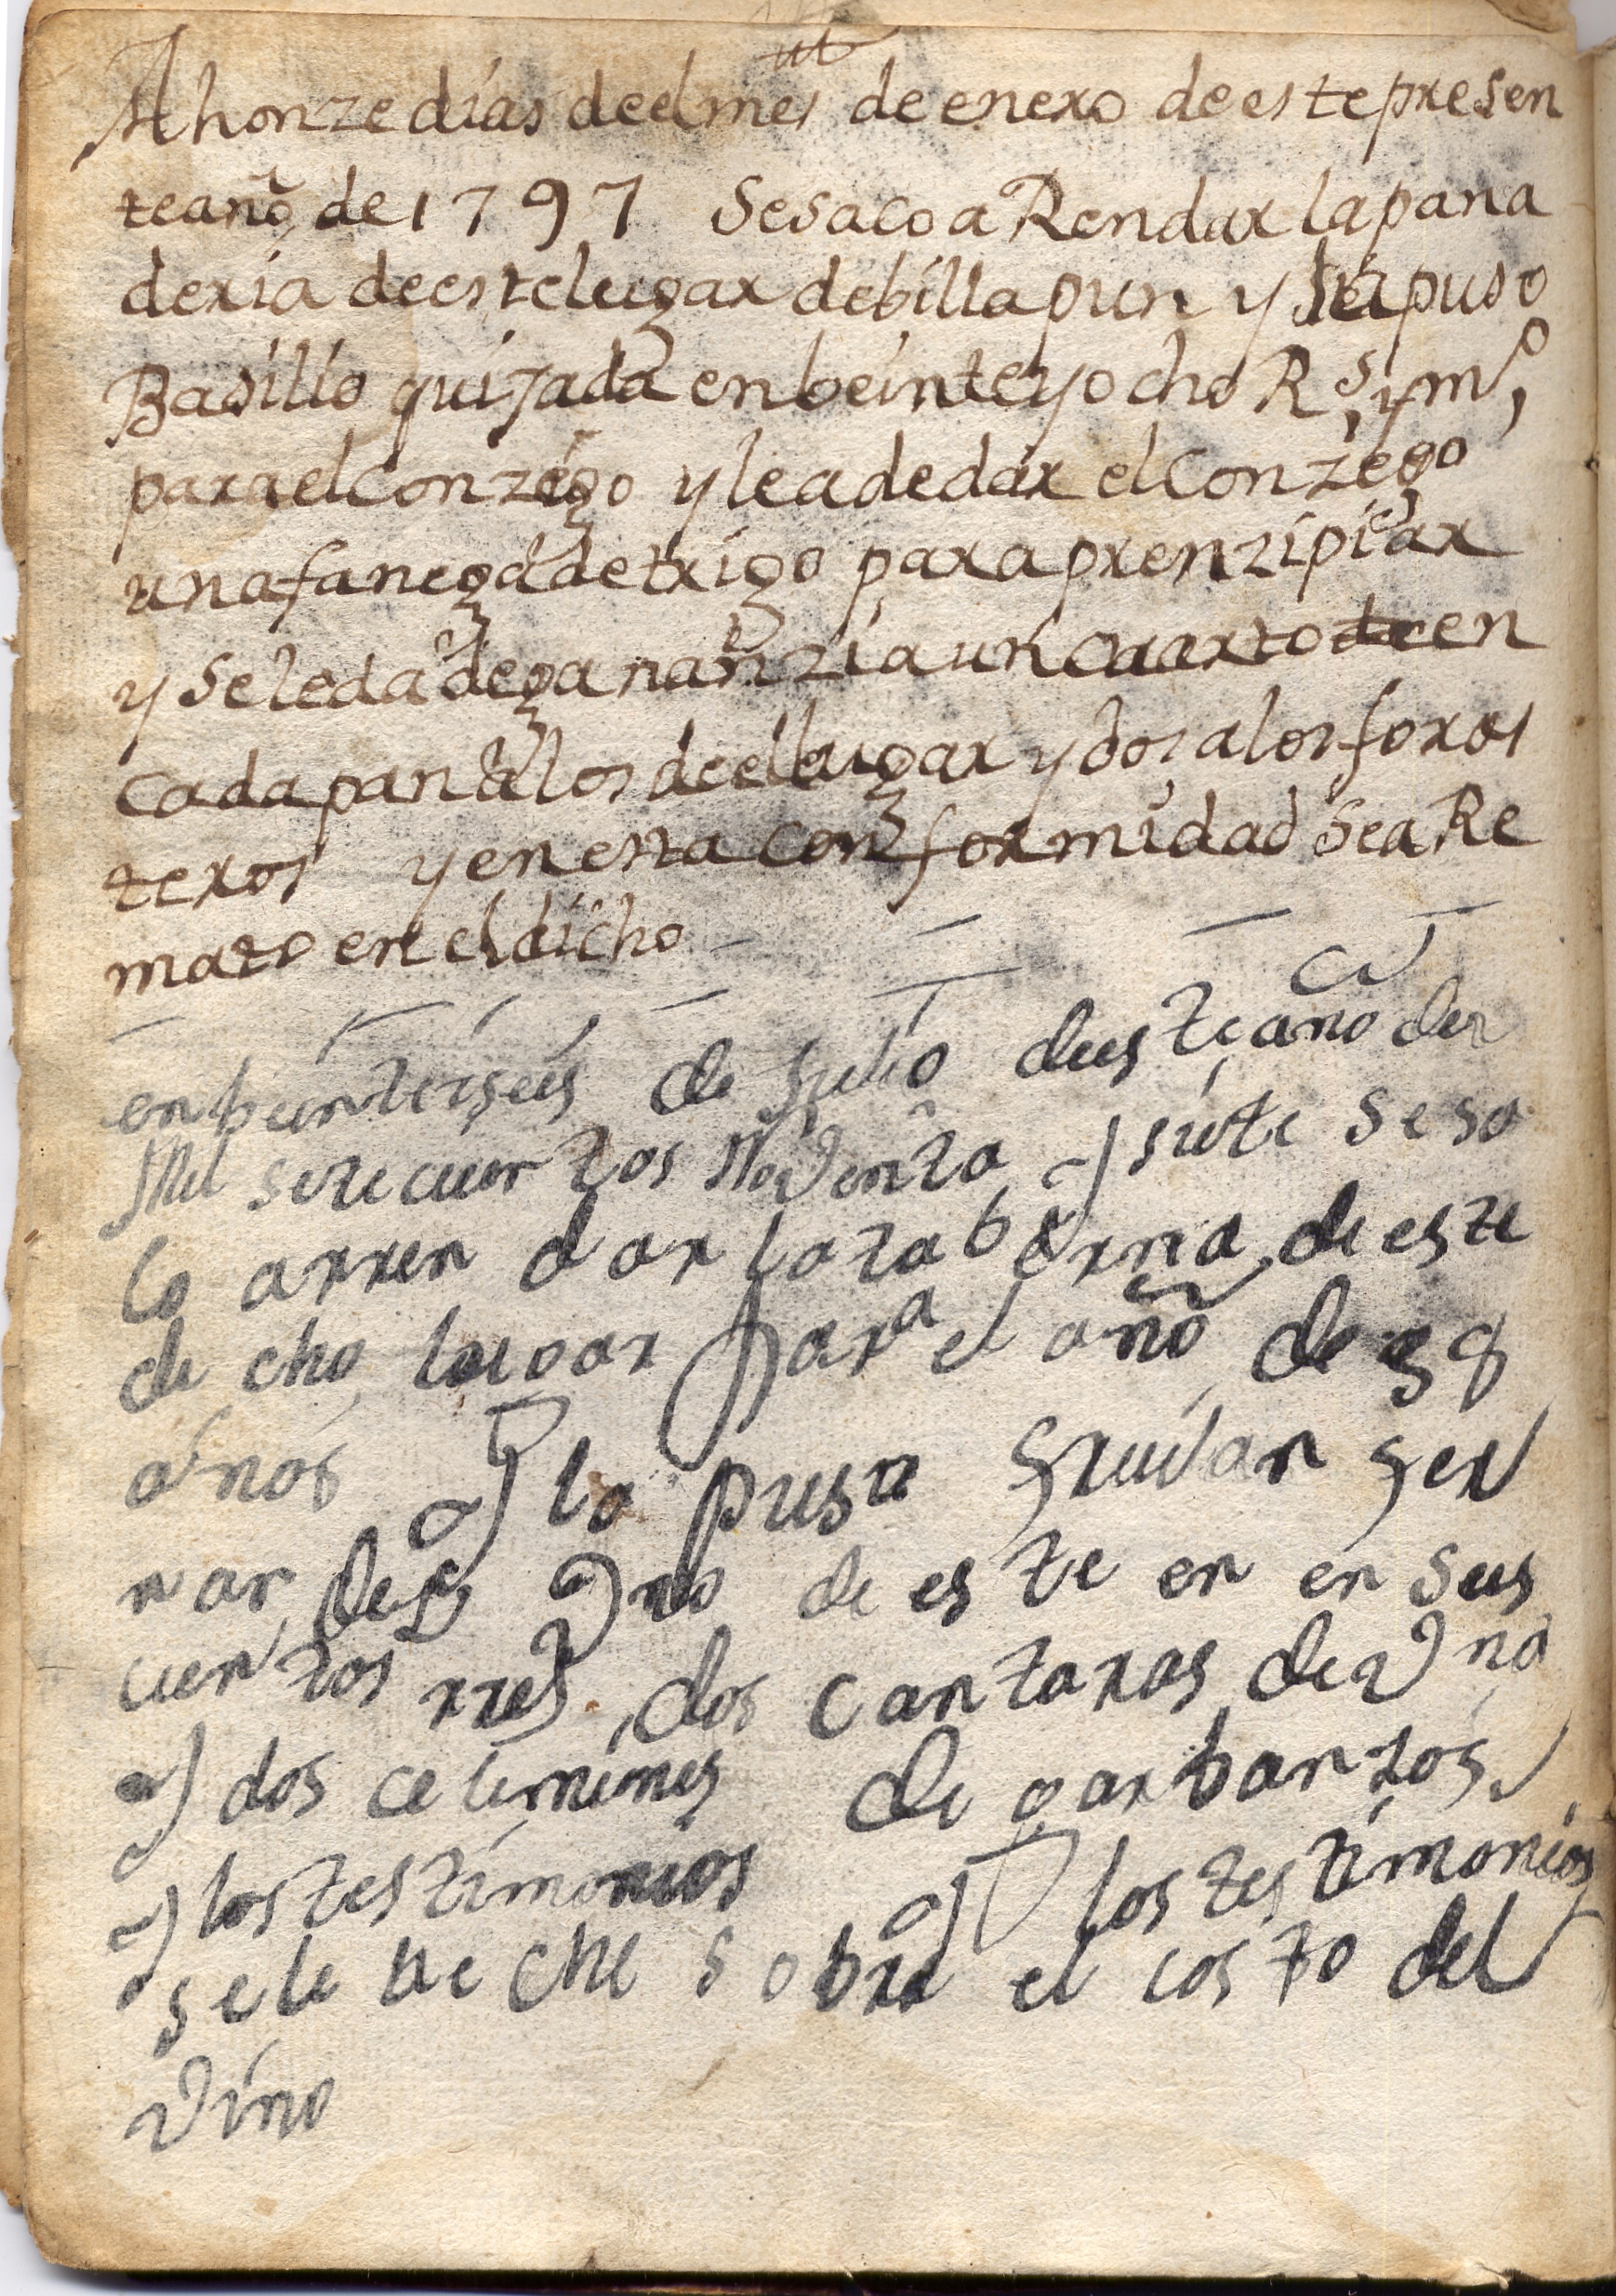 A honze dias deel mes de enero de este presen
te año de 1797 se saco a Rendar la pana
deria de este lugar de billapun y la puso
Basilio quijada en beinte y ocho Rs y mo
para el conzego y le a de dar el conzego
una fanega de trigo para prenzipiar
y se le da de gananzia un cuarto en
cada pan a los deel lugar y dos a los foras
teros y en esta conformidad sea Re
mato en el dicho
en beinteiseis de Julio deeste año de
Mil setecientos Noventa y siete se sa
co arrendar la taberna de este
de cho lugar para el año de 98
años y la puso
nan de este en en seis
cientos rres dos cantaras de vino
y dos celemines de garbanzos
y los testimonios y los testimonios
se le eche sobre el costo del
vino